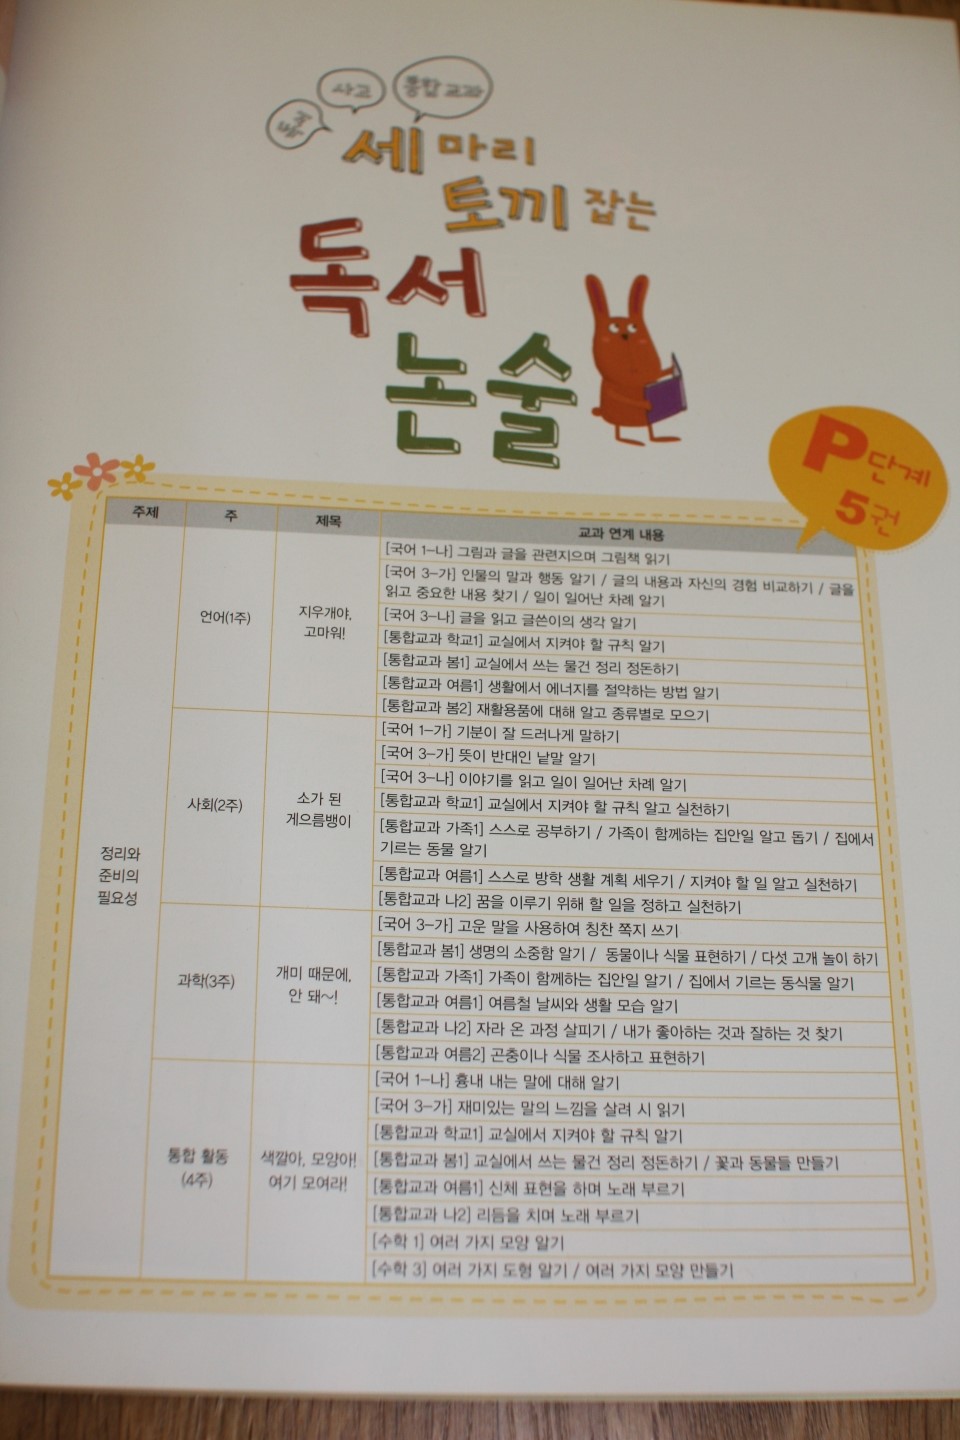 사고
통합 교과
세 마리
토끼 잡는
독서
논술
P단계
5권
주제 주 제목 교과 연계 내용
정리와
준비의
필요성
언어(1주)
지우개야,
고마워!
[국어 1-나] 그림과 글을 관련지으며 그림책 읽기
[국어 3-가] 인물의 말과 행동 알기 / 글의 내용과 자신의 경험 비교하기 / 글을
읽고 중요한 내용 찾기 / 일이 일어난 차례 알기
[국어 3-나] 글을 읽고 글쓴이의 생각 알기
[통합교과 학교1] 교실에서 지켜야 할 규칙 알기
[통합교과 봄1] 교실에서 쓰는 물건 정리 정돈하기
[통합교과 여름1] 생활에서 에너지를 절약하는 방법 알기
[통합교과 봄2] 재활용품에 대해 알고 종류별로 모으기
사회(2주)
소가 된
게으름뱅이
[국어 1-가] 기분이 잘 드러나게 말하기
[국어 3-가] 뜻이 반대인 낱말 알기
[국어 3-나] 이야기를 읽고 일이 일어난 차례 알기
[통합교과 학교1] 교실에서 지켜야 할 규칙 알고 실천하기
[통합교과 가족1] 스스로 공부하기 / 가족이 함께하는 집안일 알고 돕기 / 집에서
기르는 동물 알기
[통합교과 여름1] 스스로 방학 생활 계획 세우기 / 지켜야 할 일 알고 실천하기
[통합교과 나2] 꿈을 이루기 위해 할 일을 정하고 실천하기
과학(3주)
개미 때문에,
안 돼~!
[국어 3-가] 고운 말을 사용하여 칭찬 쪽지 쓰기
[통합교과 봄1] 생명의 소중함 알기 / 동물이나 식물 표현하기 / 다섯 고개 놀이 하기
[통합교과 가족1] 가족이 함께하는 집안일 알기 / 집에서 기르는 동식물 알기
[통합교과 여름1] 여름철 날씨와 생활 모습 알기
[통합교과 나2] 자라 온 과정 살피기 / 내가 좋아하는 것과 잘하는 것 찾기
[통합교과 여름2] 곤충이나 식물 조사하고 표현하기
통합 활동
(4주)
색깔아, 모양아!
여기 모여라!
[국어 1-나] 흉내 내는 말에 대해 알기
[국어 3-가] 재미있는 말의 느낌을 살려 시 읽기
[통합교과 학교1] 교실에서 지켜야 할 규칙 알기
[통합교과 봄1] 교실에서 쓰는 물건 정리 정돈하기 / 꽃과 동물들 만들기
[통합교과 여름1] 신체 표현을 하며 노래 부르기
[통합교과 나2] 리듬을 치며 노래 부르기
[수학 1] 여러 가지 모양 알기
[수학 3] 여러 가지 도형 알기 / 여러 가지 모양 만들기